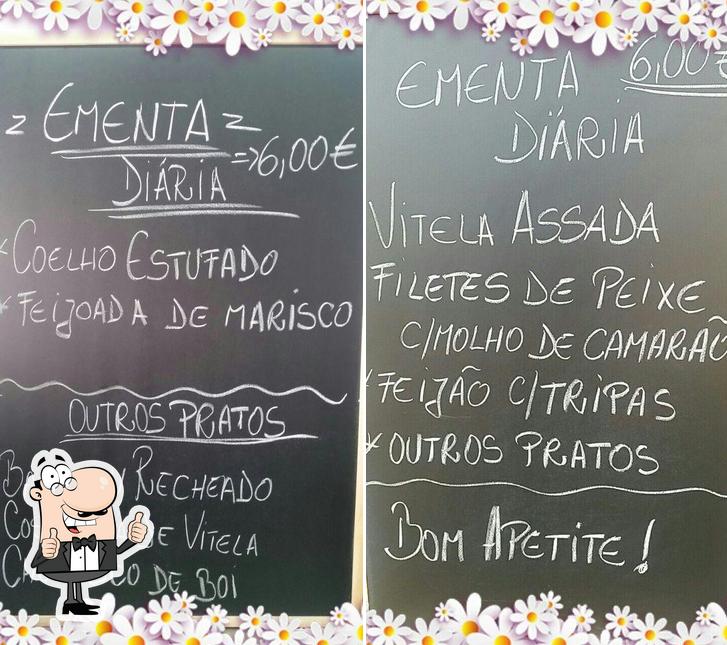 EMENTA
DIÁRIA
=>6,00€
* COELHO ESTUFADO
* FEIJOADA DE MARISCO
OUTROS PRATOS
RECHEADO
DE VITELA
DE BOI
EMENTA 6,00€
DIÁRIA
VITELA ASSADA
FILETES DE PEIXE
C/MOLHO DE CAMARÃO
* FEIJÃO C/TRIPAS
* OUTROS PRATOS
BOM APETITE!